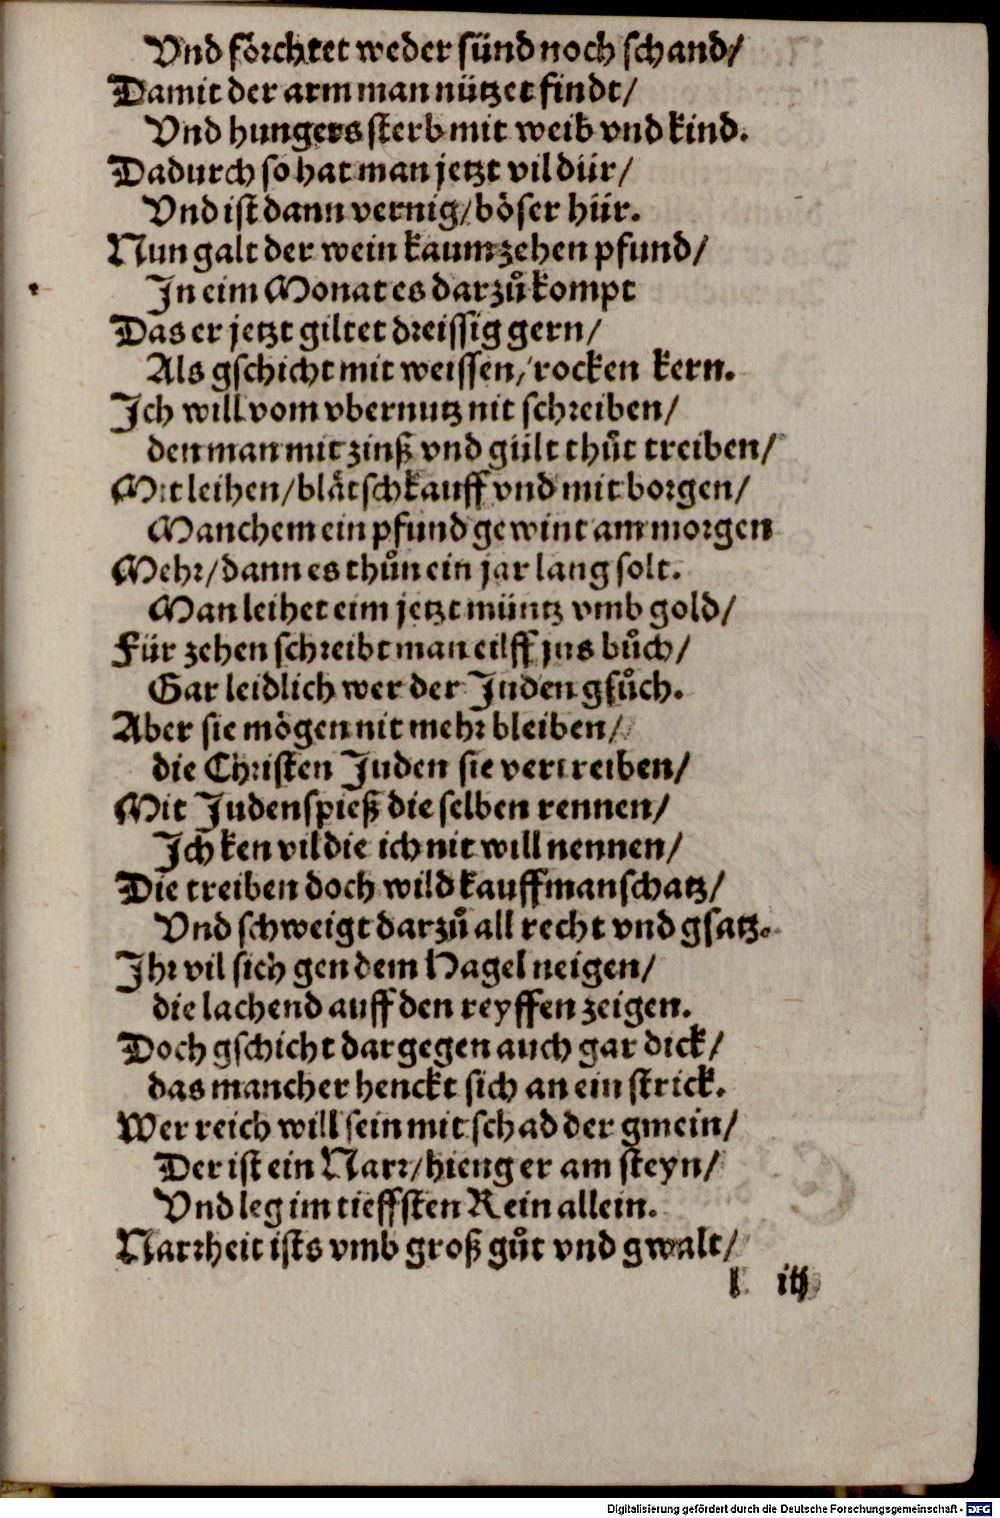 Vnd förchtet weder sünd noch schand/
Damit der arm man nützet findt/
Vnd hungers sterb mit weib vnd kind.
Dadurch so hat man jetzt vil dür/
Vnd ist dann vernig/ böser hür.
Nun galt der wein kaum zehen pfund/
In eim Monat es darzů kompt
Das er jetzt giltet dreissig gern/
Als gschicht mit weissen/ rocken kern.
Ich will vom vbernutz nit schreiben/
den man mit zinß vnd gült thůt treiben/
Mit leihen/ blåtschkauff vnd mit borgen/
Manchem ein pfund gewint am morgen
Mehr/ dann es thůn ein jar lang solt.
Man leihet eim jetzt müntz vmb gold/
Für zehen schreibt man eilff jns bůch/
Gar leidlich wer der Juden gsůch.
Aber sie mögen nit mehr bleiben/
die Christen Juden sie vertreiben/
Mit Judenspieß die selben rennen/
Ich ken vil die ich nit will nennen/
Die treiben doch wild kauffmanschatz/
Vnd schweigt darzů all recht vnd gsatz.
Ihr vil sich gen dem Hagel neigen/
die lachend auff den reyffen zeigen.
Doch gschicht dargegen auch gar dick/
das mancher henckt sich an ein strick.
Wer reich will sein mit schad der gmein/
Der ist ein Narr/ hieng er am steyn/
Vnd leg im tieffsten Rein allein.
Narrheit ists vmb groß gůt vnd gwalt/
l iij
Digitalisierung gefördert durch die Deutsche Forschungsgemeinschaft - DFG